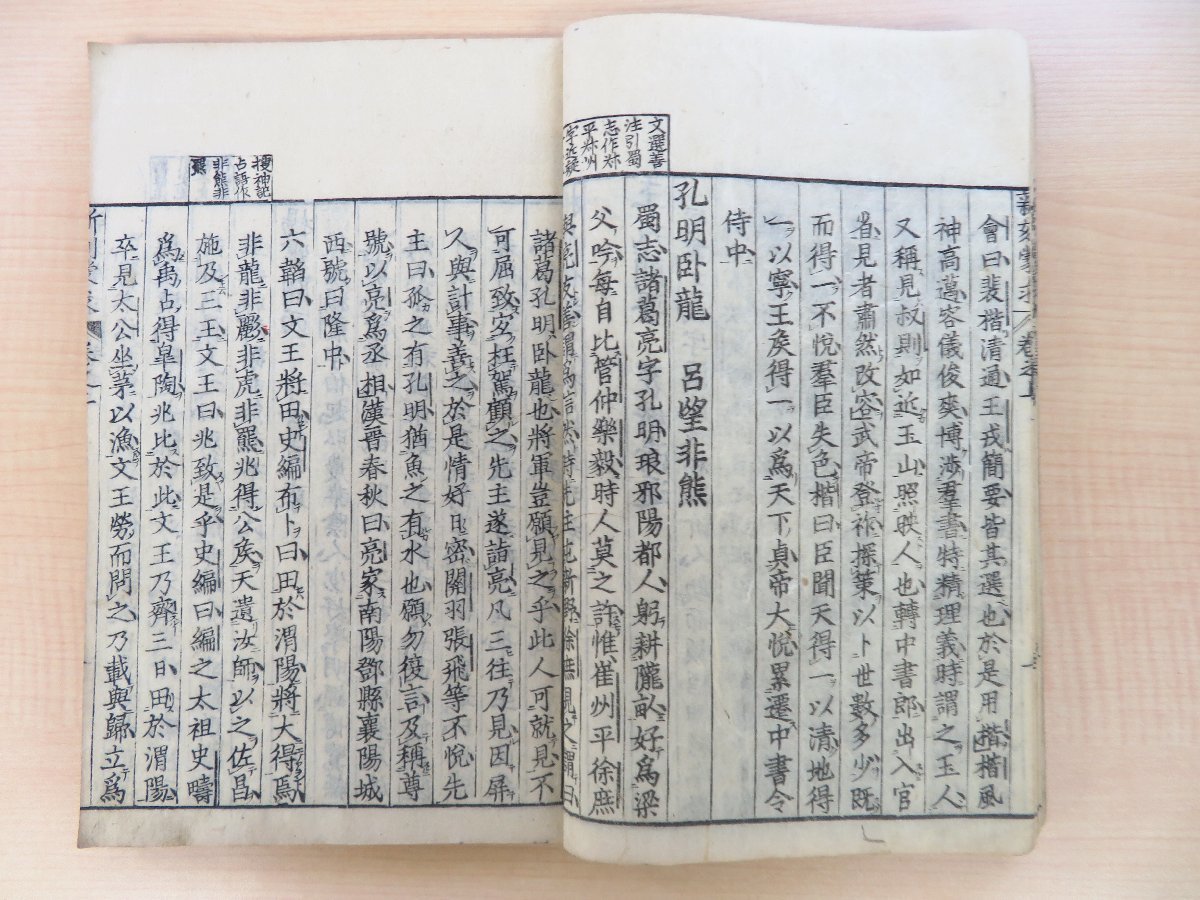 會曰裴楷清通王戎簡要皆其選也於是用楷楷風
神高邁容儀俊爽博涉羣書特精理義時謂之玉人
又稱見叔則如近玉山照映人也轉中書郎出入官
省見者肅然改容武帝登祚探策以卜世數多少既
而得一不悅羣臣失色楷曰臣聞天得一以清地得
一以寧王矦得一以為天下貞帝大悅累遷中書令
侍中
孔明卧龍 呂望非熊
蜀志諸葛亮字孔明琅邪陽都人躬耕隴畝好為梁
父吟每自比管仲樂毅時人莫之許惟崔州平徐庶
與亮友善謂為信然時先主屯新野徐庶見之謂曰
文選善
注引蜀
志作
平
諸葛孔明卧龍也將軍豈願見之乎此人可就見不
可屈致宜枉駕顧之先主遂詣亮凡三往乃見因屏
人與計事善之於是情好日密關羽張飛等不悅先
主曰孤之有孔明猶魚之有水也願勿復言及稱尊
號以亮為丞相漢晉春秋曰亮家南陽鄧縣襄陽城
西號曰隆中
六韜曰文王將田史編布卜曰田於渭陽將大得焉
非龍非彲非虎非羆兆得公矦天遺汝師以之佐昌
施及三王文王曰兆致是乎史編曰編之太祖史疇
為禹占得臯陶兆比於此文王乃齋三日田於渭陽
卒見太公坐茅以漁文王勞而問之乃載與歸立為
搜神記
占語作
非熊非
羆